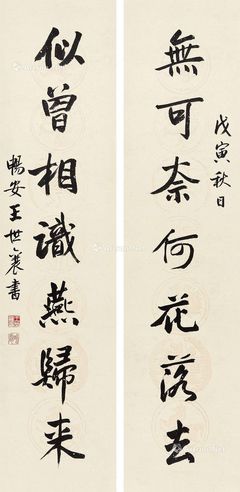 戊寅秋日
無可奈何花落去
似曾相識燕歸来
暢安王世襄書